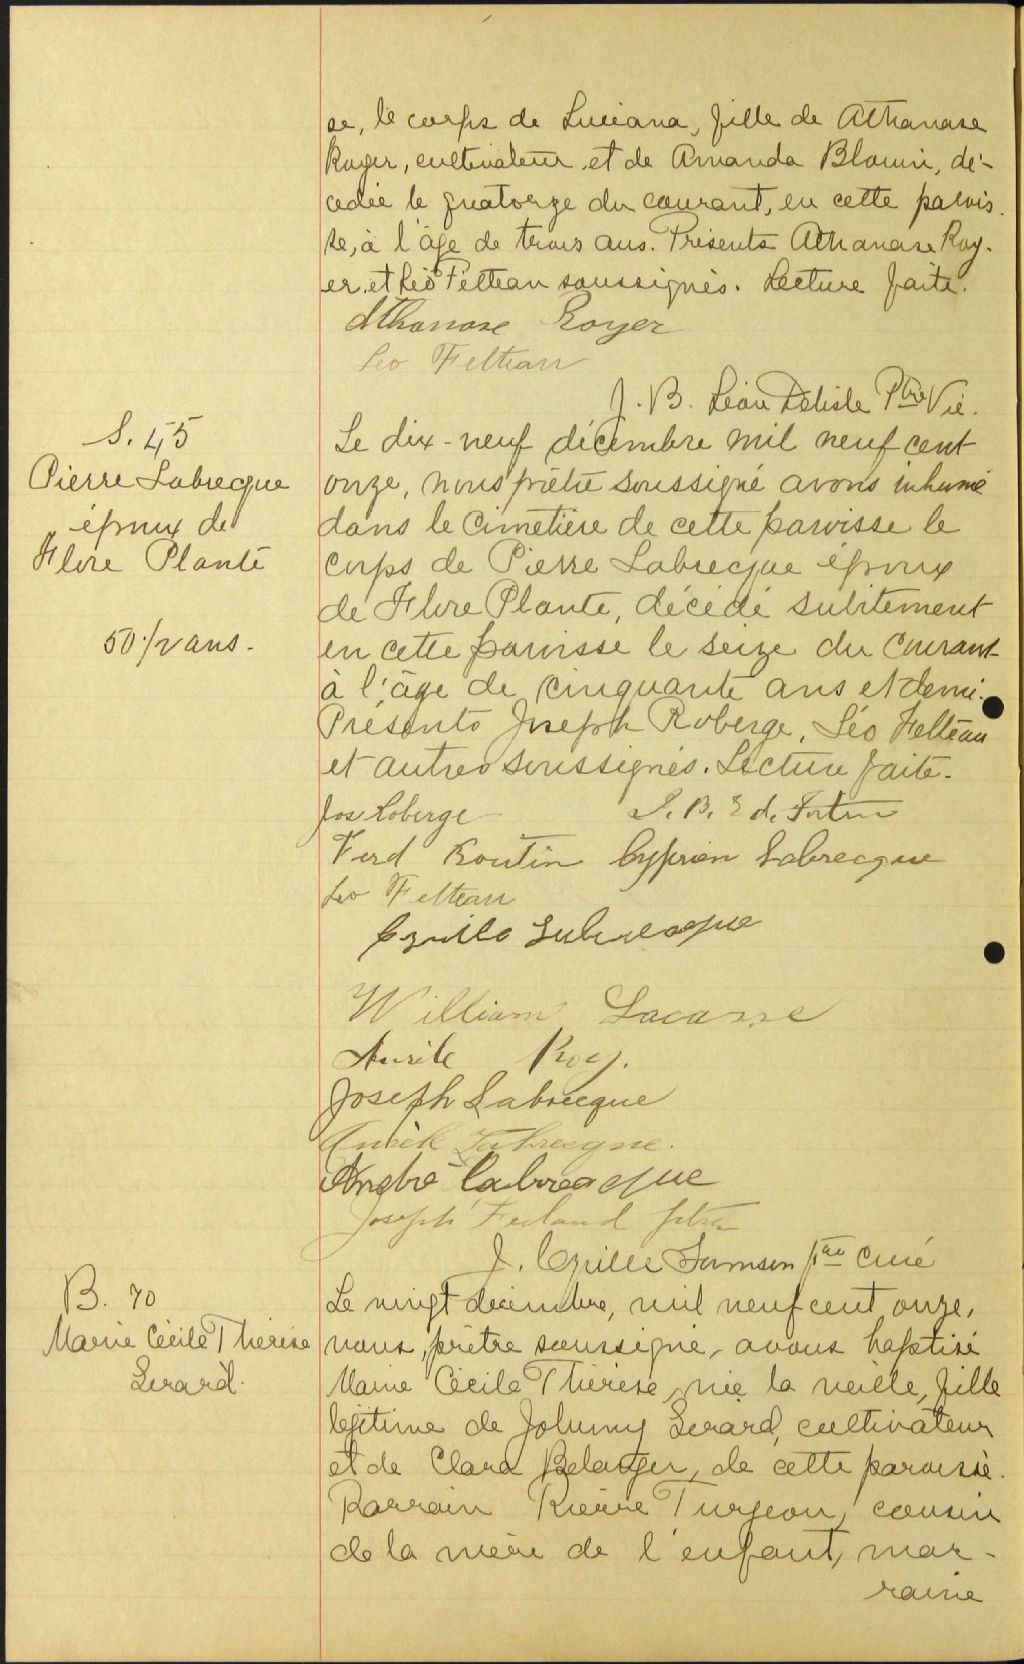 se, le corps de Luciana, fille de Athanase
Royer, cultivateur et de Amanda Blouin, dé-
cédée le quatorze du courant, en cette parois-
se, à l'âge de trois ans. Présents Athanase Roy-
er, et Léo Felteau soussignés. Lecture faite.
Athanase Royer
Leo Felteau
J. B. Léon Delisle Ptre Vic.
S. 45
Pierre Labrecque
époux de
Flore Planté
50 1/2 ans.
Le dix-neuf décembre mil neuf cent
onze, nous prêtre soussigné avons inhumé
dans le cimetière de cette paroisse le
corps de Pierre Labrecque époux
de Flore Plante, décédé subitement
en cette paroisse le seize du courant
à l'âge de cinquante ans et demi.
Présents Joseph Roberge, Léo Felteau
et autres soussignés. Lecture faite.
Jos Roberge
Ferd Routin Cyprien Labrecque
Leo Felteau
Cyrille Labrecque
William Lacasse
Roy.
Joseph Labrecque
Labrecque.
André Labrecque
Joseph Ferland ptre
J. Cyrille Samson ptre curé
B. 70
Marie Cécile Thérèse
Le vingt décembre, mil neuf cent onze,
nous, prêtre soussigné, avons baptisé
Marie Cécile Thérèse, née la veille, fille
légitime de Johnny cultivateur
et de Clara Belanger, de cette paroisse.
Parrain Pierre Turgeon, cousin
de la mère de l'enfant, mar-
raine